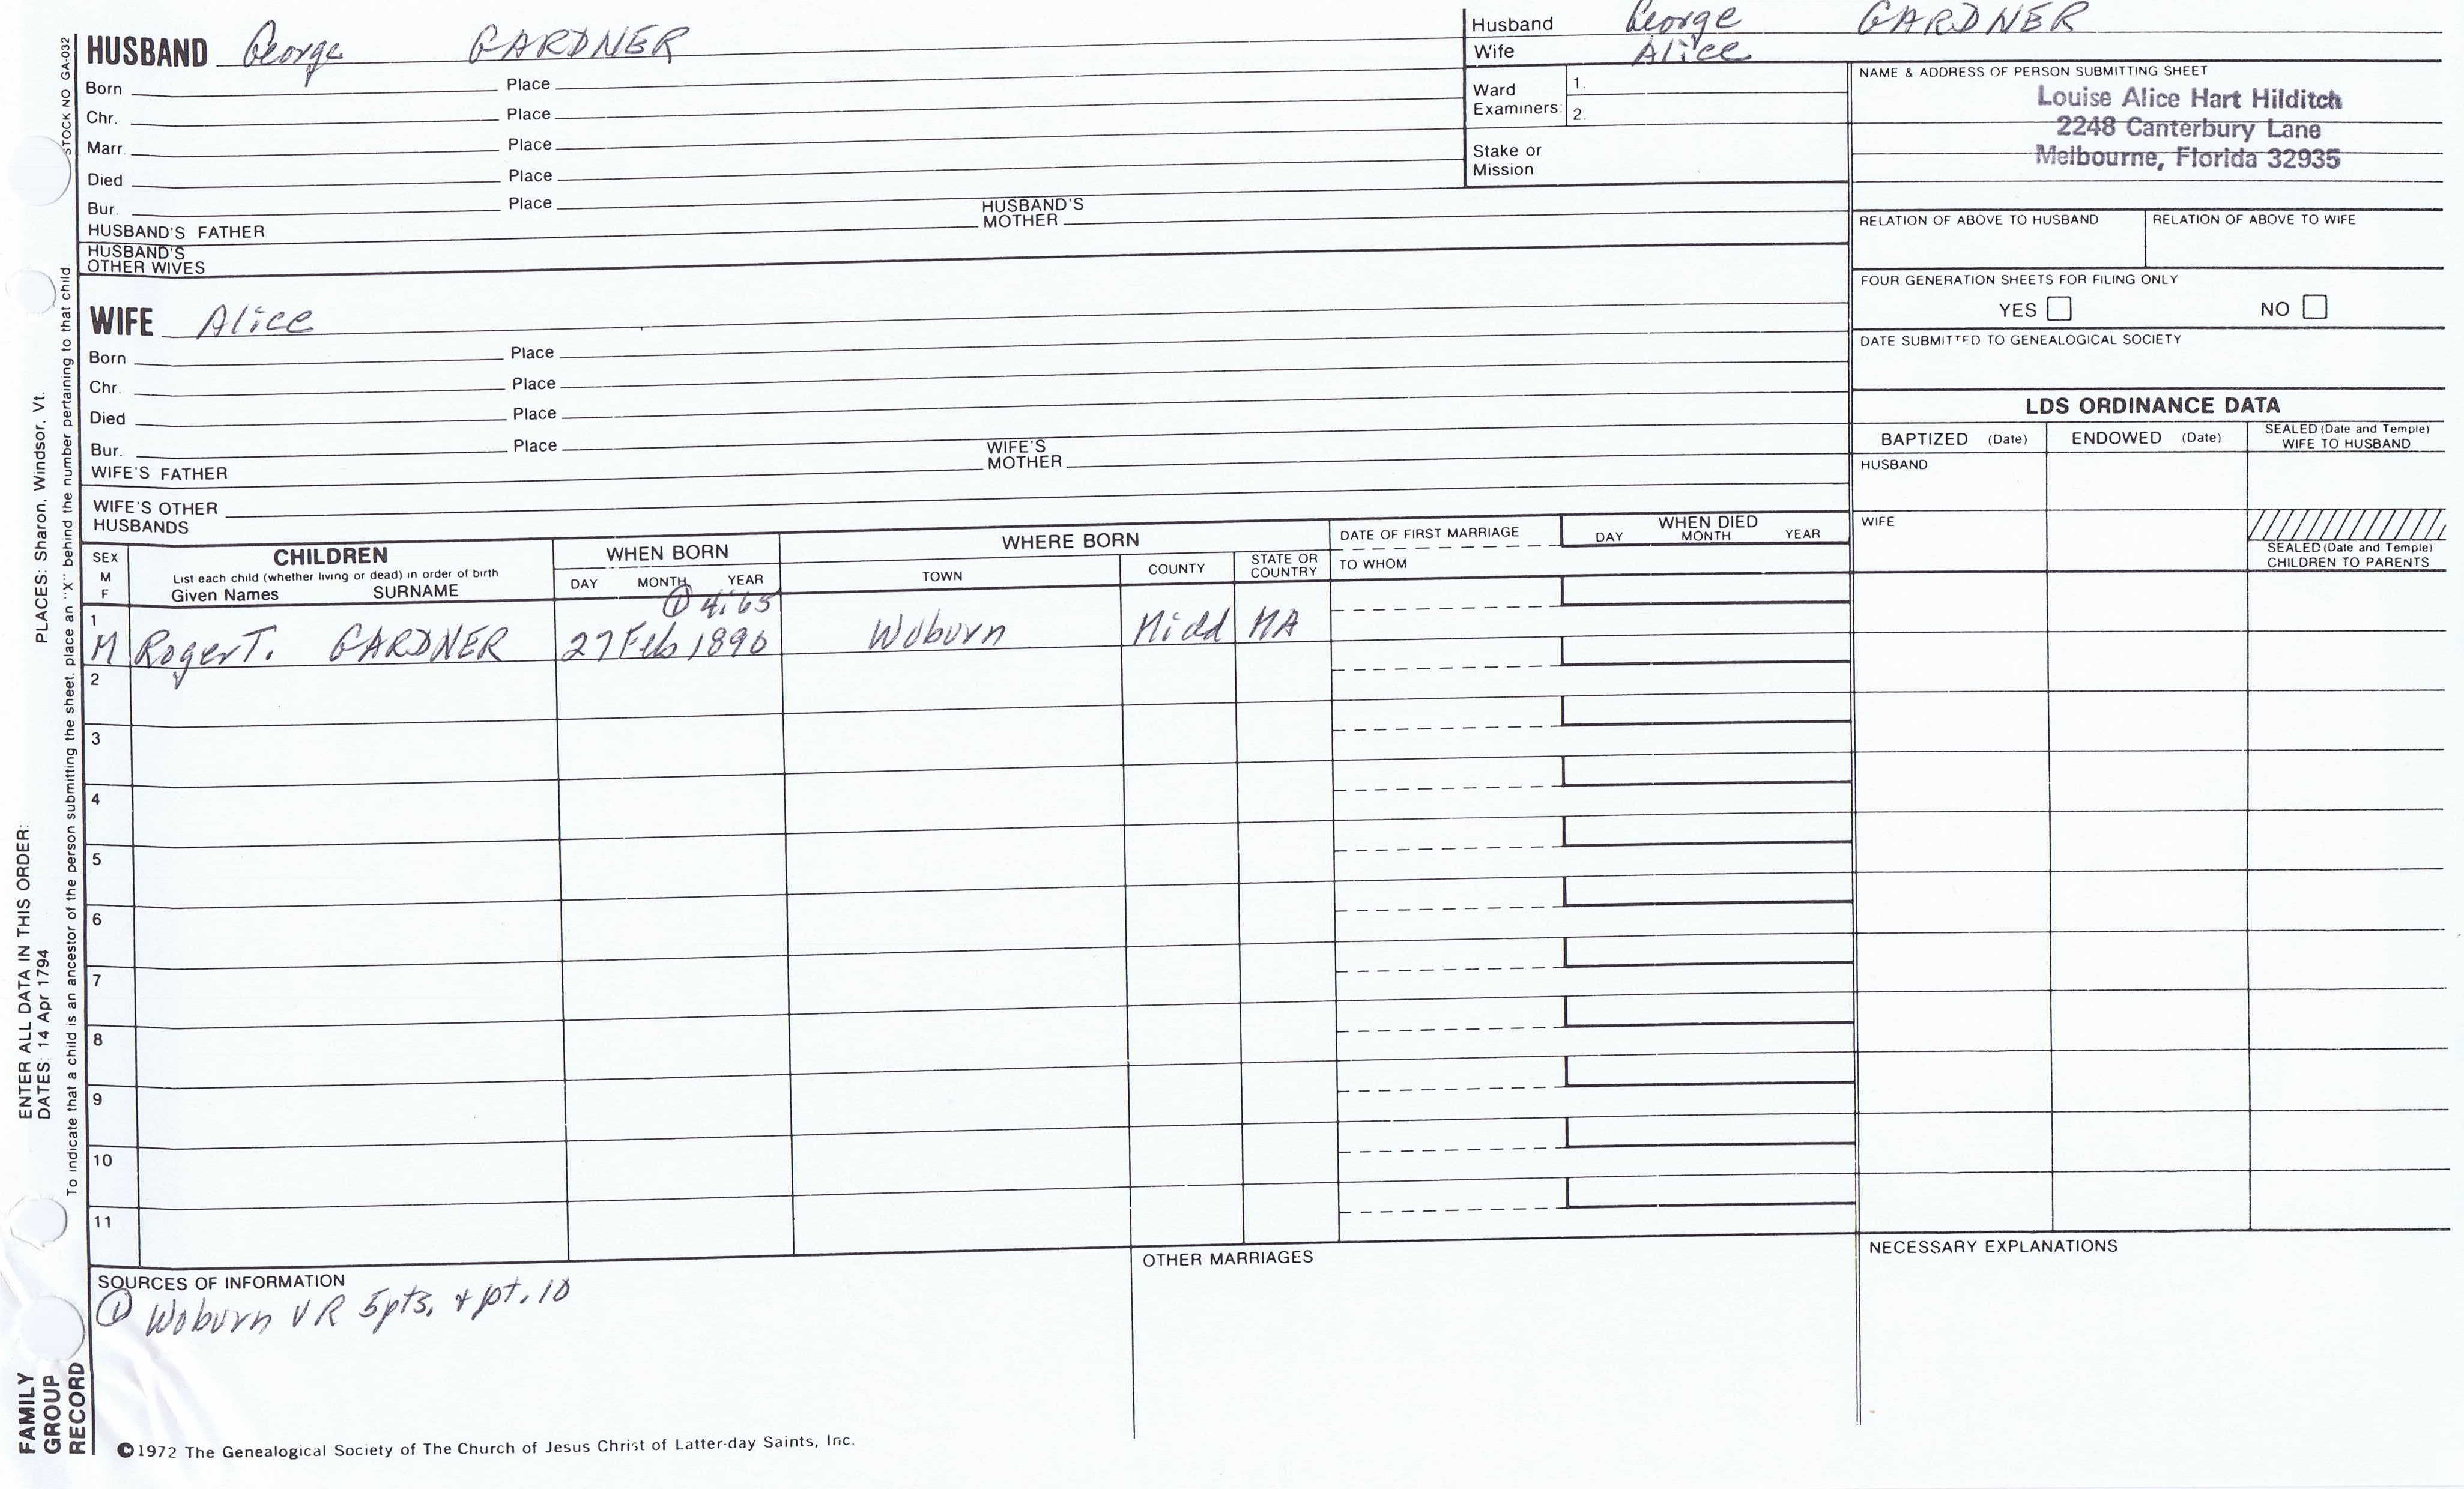 HUSBAND George GARDNER
Born Place
Chr. Place
Marr. Place
Died Place
Bur. Place
HUSBAND'S FATHER HUSBAND'S MOTHER
HUSBAND'S OTHER WIVES
WIFE Alice
Born Place
Chr. Place
Died Place
Bur. Place
WIFE'S FATHER WIFE'S MOTHER
WIFE'S OTHER HUSBANDS
Husband George GARDNER
Wife Alice
Ward Examiners: 1.
2.
Stake or Mission
NAME & ADDRESS OF PERSON SUBMITTING SHEET
Louise Alice Hart Hilditch
2248 Canterbury Lane
Melbourne, Florida 32935
RELATION OF ABOVE TO HUSBAND RELATION OF ABOVE TO WIFE
FOUR GENERATION SHEETS FOR FILING ONLY
YES NO
DATE SUBMITTED TO GENEALOGICAL SOCIETY
LDS ORDINANCE DATA
BAPTIZED (Date) ENDOWED (Date) SEALED (Date and Temple) WIFE TO HUSBAND
HUSBAND
WIFE
SEALED (Date and Temple) CHILDREN TO PARENTS
SEX M F
CHILDREN
List each child (whether living or dead) in order of birth
Given Names SURNAME
WHEN BORN
DAY MONTH YEAR
WHERE BORN
TOWN COUNTY STATE OR COUNTRY
DATE OF FIRST MARRIAGE
TO WHOM
WHEN DIED
DAY MONTH YEAR
① 4:65
1 M Roger T. GARDNER 27 Feb 1890 Woburn Midd MA
2
3
4
5
6
7
8
9
10
11
SOURCES OF INFORMATION
① Woburn VR 5pts. + pt. 10
OTHER MARRIAGES
NECESSARY EXPLANATIONS
©1972 The Genealogical Society of The Church of Jesus Christ of Latter-day Saints, Inc.
STOCK NO GA-032
To indicate that a child is an ancestor of the person submitting the sheet, place an "X" behind the number pertaining to that child
ENTER ALL DATA IN THIS ORDER:
DATES: 14 Apr 1794 PLACES: Sharon, Windsor, Vt.
FAMILY
GROUP
RECORD